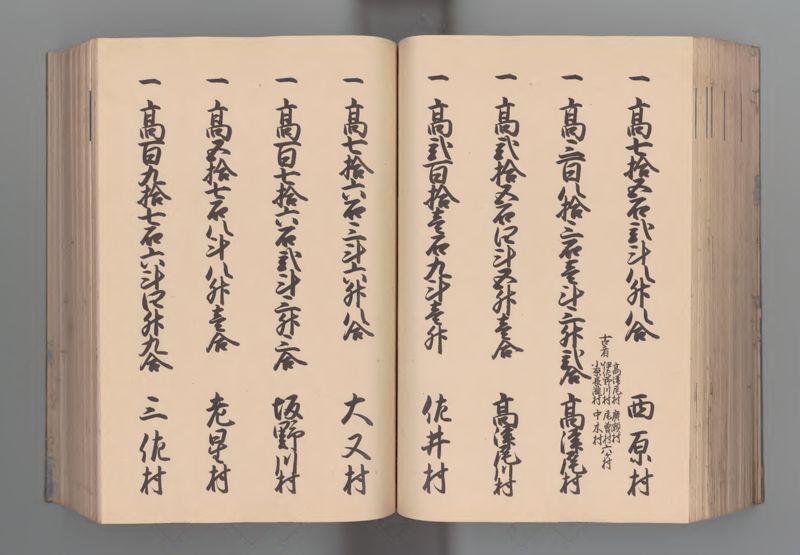 一 高七拾五石弐斗八升八合 西原村
一 高三百八拾三石壱斗三升弐合 高津尾村
古者
高津尾村 廣瀬村
伊佐野川村 尾曽村 六ヶ村
小原長瀧村 中木村
一 高弐拾五石四斗五升壱合 高津尾川村
一 高弐百拾壱石九斗壱升 佐井村
一 高七拾六石三斗六升八合 大又村
一 高百七拾六石弐斗三升三合 坂野川村
一 高五拾七石八斗八升壱合 老星村
一 高百九拾七石六斗四升九合 三佐村